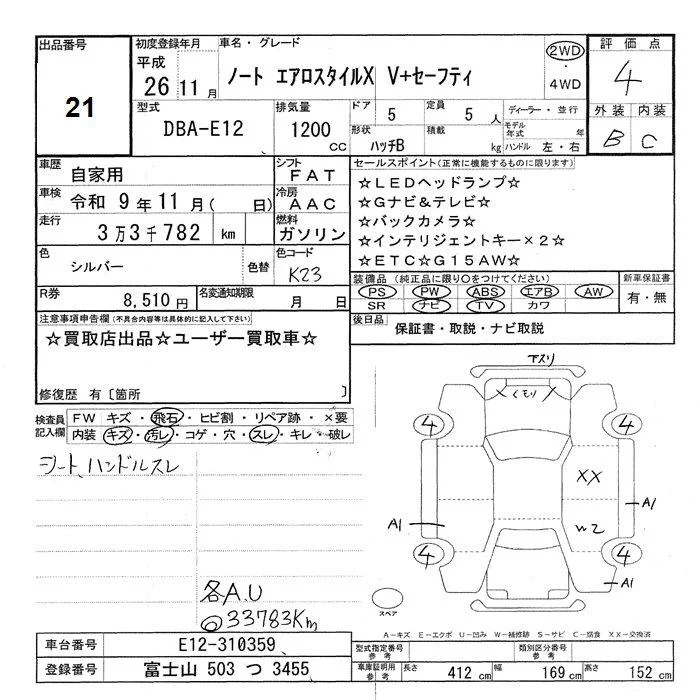 出品番号
21
初度登録年月
平成
26 11 月
車名・グレード
ノート エアロスタイルX V+セーフティ
2WD
・
4WD
評価点
4
外装 内装
B C
型式
DBA-E12
排気量
1200
CC
ドア 5
定員 5 人
形状
ハッチB
積載
kg
ディーラー・並行
モデル
年式 年
ハンドル 左・右
車歴
自家用
シフト
FAT
車検
令和 9 年 11 月( 日)
冷房
AAC
走行
3万3千782 km
燃料
ガソリン
色
シルバー
色替
色コード
K23
R券
8,510円
名変通知期限
月 日
セールスポイント(正常に機能するものに限ります)
☆LEDヘッドランプ☆
☆Gナビ&テレビ☆
☆バックカメラ☆
☆インテリジェントキー×2☆
☆ETC☆G15AW☆
装備品 (純正品に限り○をつけてください)
PS PW ABS エアB AW
SR ナビ TV カワ
新車保証書
有・無
後日品
保証書・取説・ナビ取説
注意事項申告欄(不具合内容等は具体的に記入して下さい)
☆買取店出品☆ユーザー買取車☆
修復歴 有〔箇所 〕
検査員
記入欄
FW キズ・飛石・ヒビ割・リペア跡・×要
内装 キズ・汚レ・コゲ・穴・スレ・キレ・破レ
シート、ハンドルスレ
各A.U
◎33783Km
下スリ
くもり
4 4
XX
A1
A1
W2
4 4
A1
スペア
A-キズ E-エクボ U-凹み W-補修跡 S-サビ C-腐食 XX-交換済
車台番号
E12-310359
登録番号
富士山 503 つ 3455
型式指定番号
参考
類別区分番号
参考
車庫証明用
参考
長さ 412 cm
幅 169 cm
高さ 152 cm